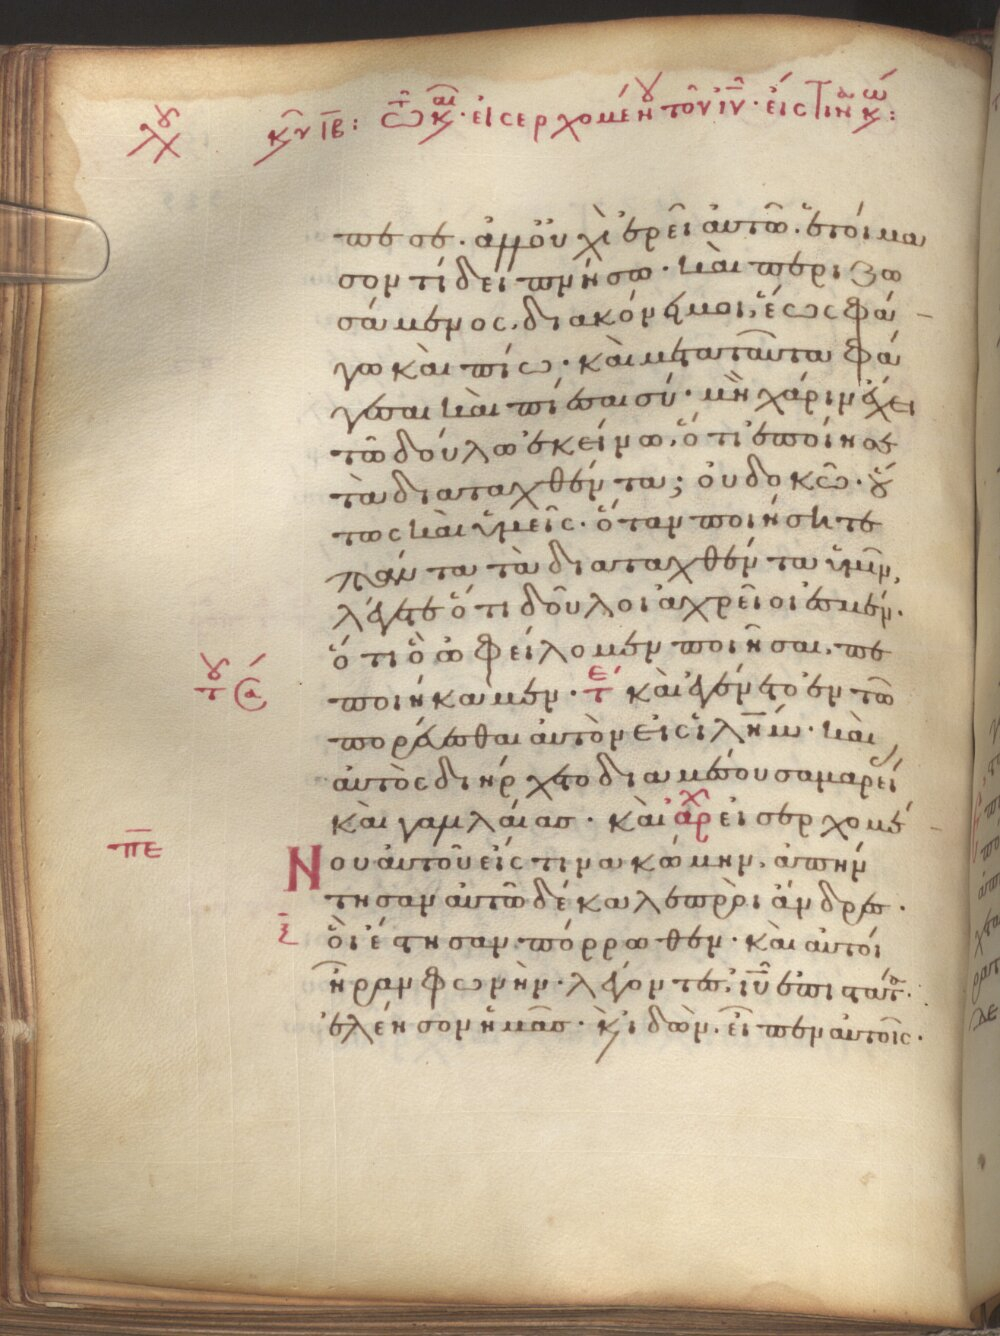 κυ ιβ: τω καιρω· εἰσερχομένου τὸν ἰν· εἴς τινα κώ:
πεσε· ἀλλ' οὐχὶ ἐρεῖ αὐτῶ· ἑτοίμα
σον τί δειπνήσω· καὶ περιζω
σάμενος, διακόνει μοι, ἕως φά
γω καὶ πίω· καὶ μετα ταῦτα φά
γεσαι καὶ πίεσαι σύ· μὴ χάριν ἔχει
τῶ δούλω ἐκείνω, ὅτι ἐποίησε
τὰ διαταχθέντα; οὐ δοκῶ· οὕ
τως καὶ ὑμεῖς· ὅταν ποιήσητε
πάντα τὰ διαταχθέντα ὑμῖν,
λέγετε ὅτι δοῦλοι ἀχρεῖοι ἐσμέν·
ὅτι ὃ ὠφείλομεν ποιῆσαι, πε
ποιήκαμεν· τε καὶ ἐγένετο ἐν τῶ
πορεύεσθαι αὐτὸν εἰς ἱλημ· καὶ
αὐτὸς διήρχετο δια μέσου σαμαρεί
και γαλιλαίας· καὶ αρχ εἰσερχομέ
πε
Νου αὐτοῦ εἴς τινα κώμην, ἀπήν
τησαν αὐτῶ δέκα λεπροὶ ἄνδρες·
οἳ ἔστησαν πόρρωθεν· καὶ αὐτοὶ
ἦραν φωνὴν· λέγοντες, ιυ ἐπιστάτα·
ἐλέησον ἡμᾶς· κ ἰδὼν, εἶπεν αὐτοῖς·